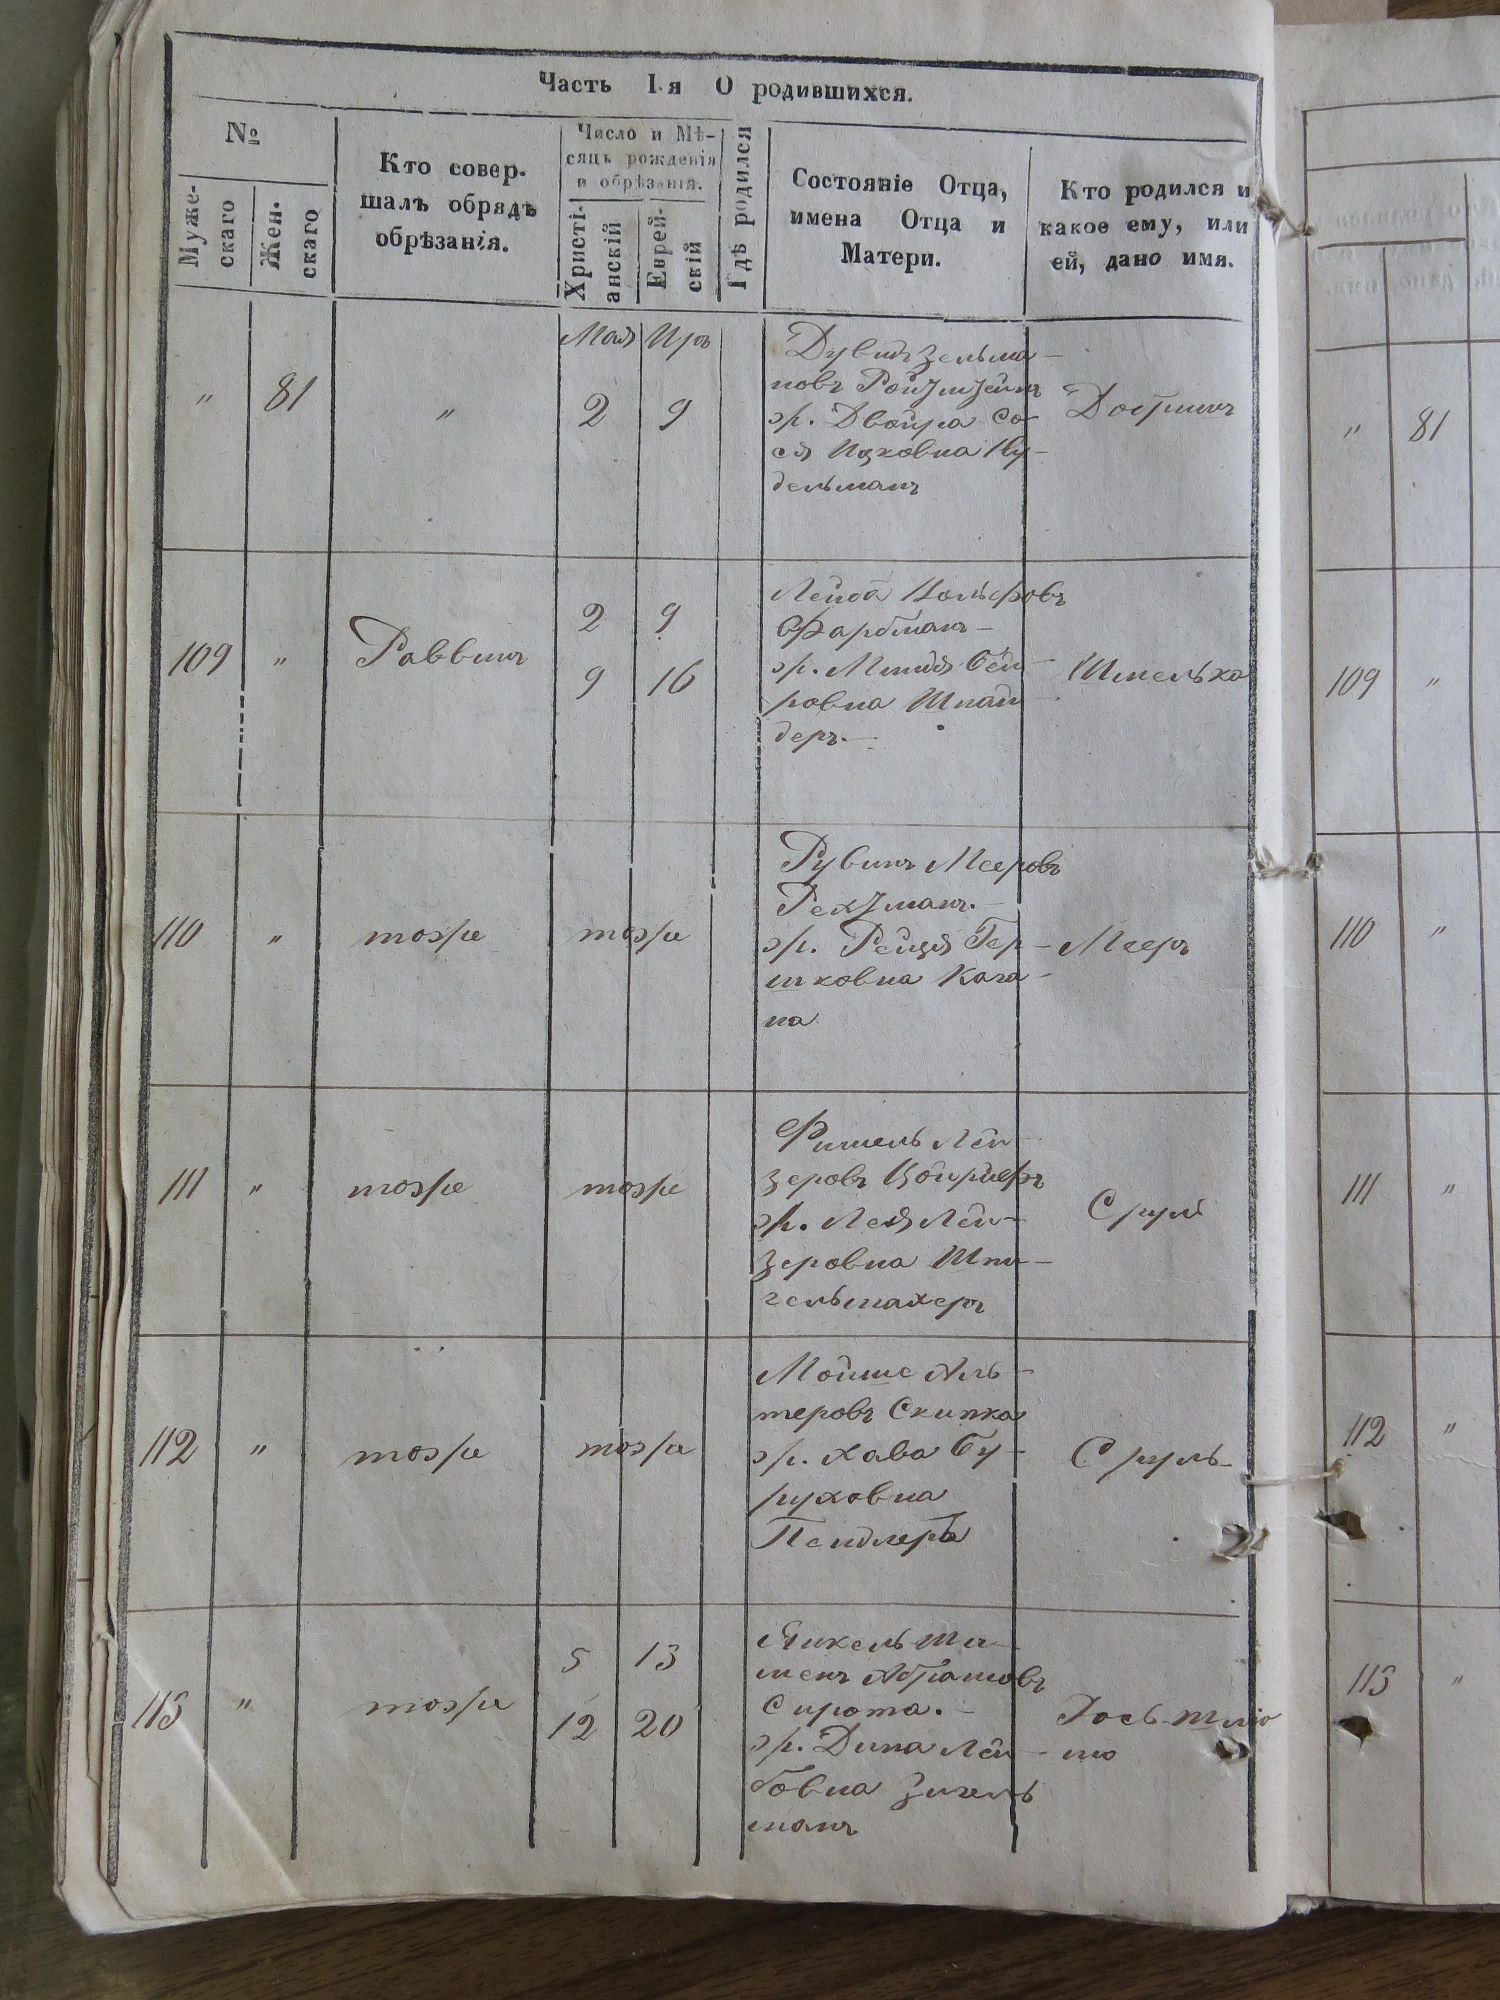 Часть I-я О родившихся.
№
Муже-
скаго
Жен-
скаго
Кто совер-
шалъ обрядъ
обрѣзанія.
Число и Мѣ-
сяцъ рожденія
и обрѣзанія.
Христі-
анскій
Еврей-
скій
Гдѣ родился
Состояніе Отца,
имена Отца и
Матери.
Кто родился и
какое ему, или
ей, дано имя.
Мая Иръ
" 81 " 2 9
Дувидъ Зельма-
новъ
ж. Двойра Со-
ся Ицковна Ну-
дельманъ
" 81
109 " Раввинъ
2 9
9 16
Лейба Вольфовъ
Фарбманъ
ж. Бей-
ровна Шнай-
деръ
Шмелька
109 "
110 " тоже тоже
Рубинъ Мееровъ
Рехтманъ.
ж. Рейзя Гер-
шковна Кага-
на
Мееръ
110 "
111 " тоже тоже
Фишель Лей-
зеровъ
ж. Лея Лей-
зеровна Шпи-
гельмахеръ
Сруль
111 "
112 " тоже тоже
Мойше Аль-
теровъ Скипка
ж. Хава Бу-
руховна
Пендлеръ
Сруль
112 "
113 " тоже
5 13
12 20
Янкель Ши-
менъ Абрамовъ
Сирота.
ж. Дина Лей-
бовна Зигель
манъ
Іось-Шліо-
мо
113 "